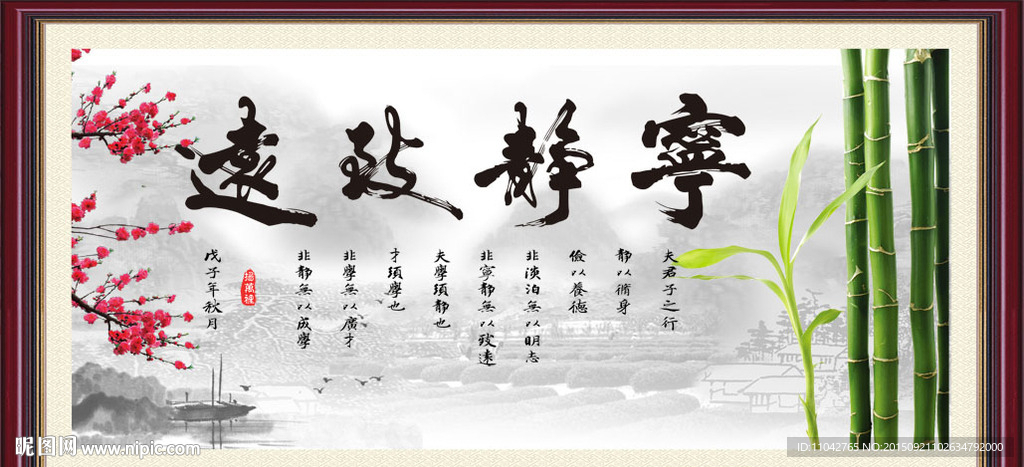 寧靜致遠
夫君子之行
靜以脩身
儉以養德
非淡泊無以明志
非寧靜無以致遠
夫學須靜也
才須學也
非學無以廣才
非靜無以成學
戊子年秋月
昵图网 www.nipic.com
ID:11042765 NO:20150921102634792000